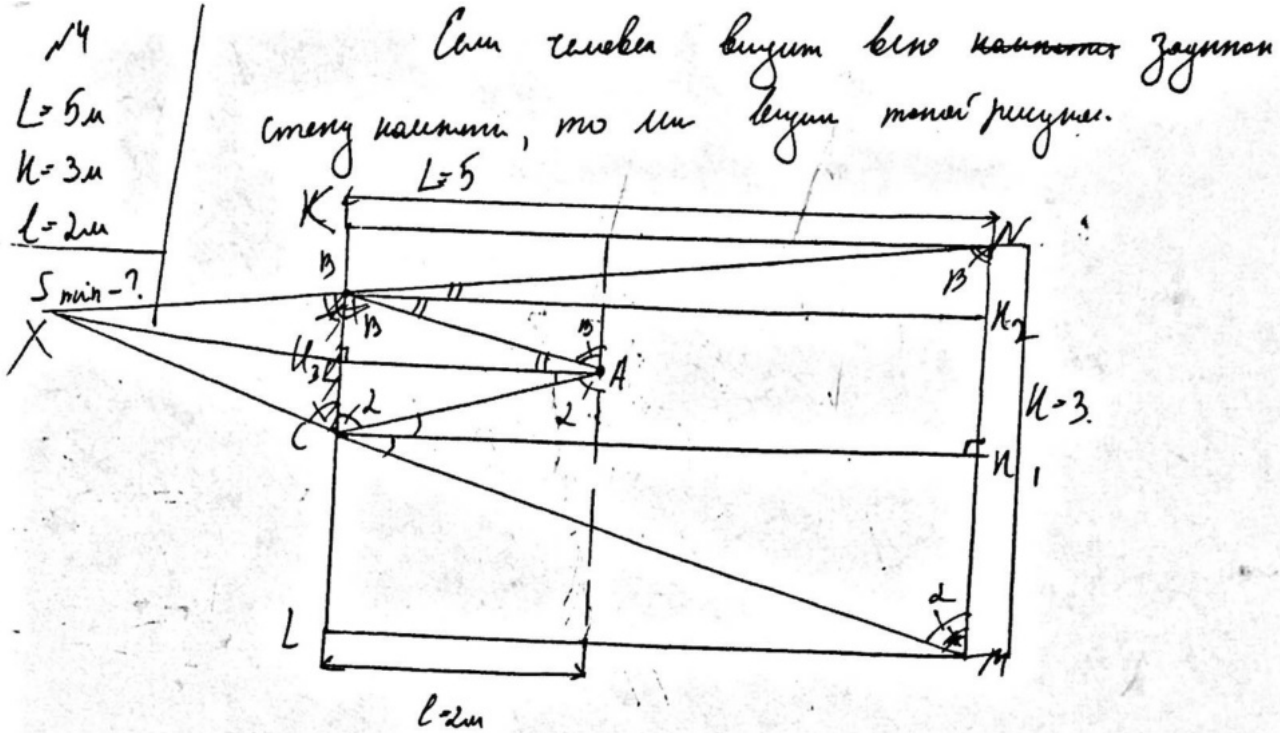 №4
L=5м
H=3м
l=2м
S min - ?
Если человек видит всю заднюю
стену комнаты, то мы видим такой рисунок.
L=5
K
N
B
B
B
B
H2
X
H3
A
C
2
2
H=3.
H1
2
L
M
l=2м